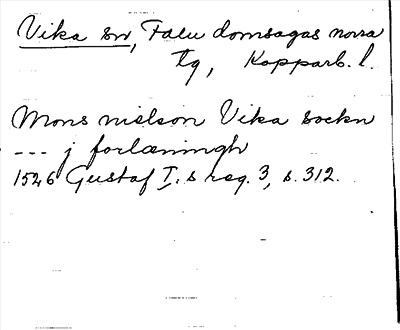 Vika sn, Falu domsagas norra
tg, Kopparb. l.
Mons nielson Vika sockn
--- j forlæningh
1526 Gustaf I.s reg. 3, s. 312.